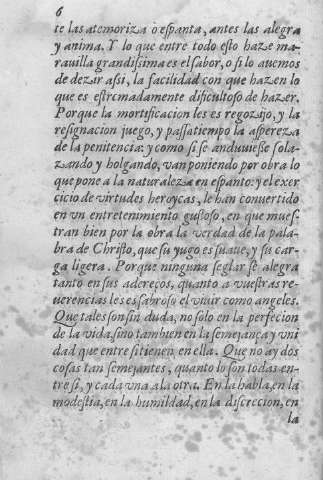 6
te las atemoriza ò espanta, antes las alegra
y anima. Y lo que entre todo esto haze ma-
rauilla grandissima es el sabor, o si lo auemos
de dezir assi, la facilidad con que hazen lo
que es estremadamente dificultoso de hazer.
Porque la mortificacion les es regozijo, y la
resignacion juego, y passatiempo la aspereza
de la penitencia: y como si se anduuiesse sola-
zando y holgando, van poniendo por obra lo
que pone a la naturaleza en espanto: y el exer
cicio de virtudes heroycas, le han conuertido
en vn entretenimiento gustoso, en que mues-
tran bien por la obra la verdad de la pala-
bra de Christo, que su yugo es suaue, y su car-
ga ligera. Porque ninguna seglar se alegra
tanto en sus adereços, quanto a vuestras re-
uerencias les es sabroso el viuir como angeles.
Que tales son sin duda, no solo en la perfecion
de la vida, sino tambien en la semejança y vni
dad que entre si tienen en ella. Que no ay dos
cosas tan semejantes, quanto lo son todas en-
tre si, y cada vna a la otra. En la habla, en la
modestia, en la humildad, en la discrecion, en
la